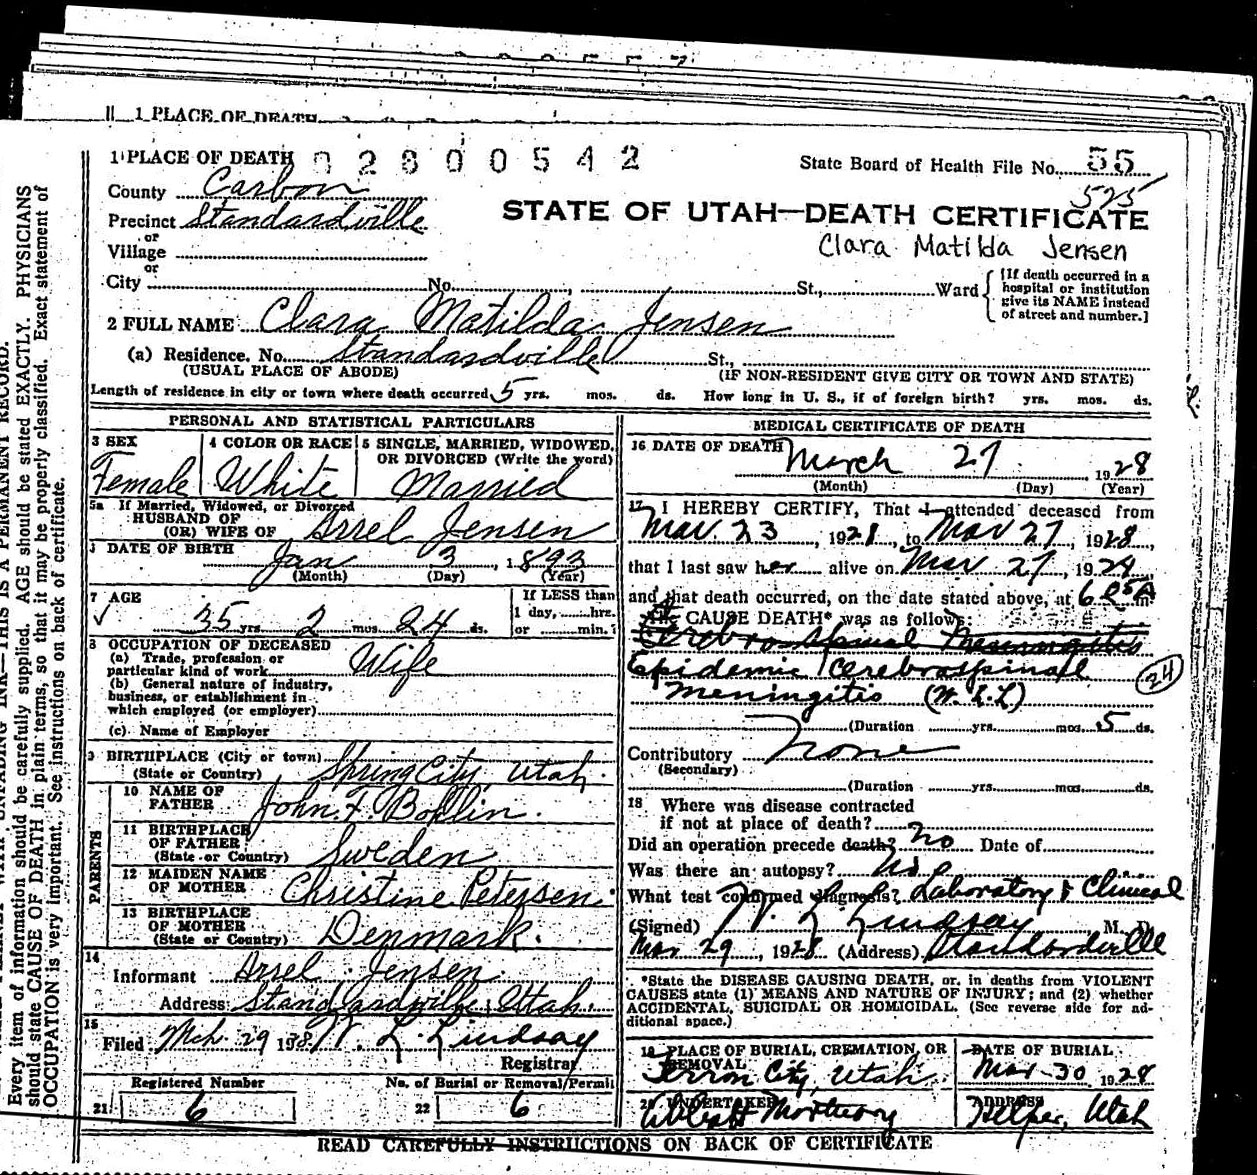 1 PLACE OF DEATH
1 PLACE OF DEATH 02800542
State Board of Health File No. 55
525
County Carbon
Precinct Standardville
STATE OF UTAH—DEATH CERTIFICATE
or
Village
Clara Matilda Jensen
or
City No. , St., Ward
[If death occurred in a
hospital or institution
give its NAME instead
of street and number.]
2 FULL NAME Clara Matilda Jensen
(a) Residence. No. Standardville St.,
(USUAL PLACE OF ABODE) (IF NON-RESIDENT GIVE CITY OR TOWN AND STATE)
Length of residence in city or town where death occurred 5 yrs. mos. ds. How long in U. S., if of foreign birth? yrs. mos. ds.
PERSONAL AND STATISTICAL PARTICULARS
3 SEX
Female
4 COLOR OR RACE
White
5 SINGLE, MARRIED, WIDOWED,
OR DIVORCED (Write the word)
Married
5a If Married, Widowed, or Divorced
HUSBAND OF
(OR) WIFE OF Arrel Jensen
DATE OF BIRTH Jan 3, 1893
(Month) (Day) (Year)
7 AGE
35 yrs. 2 mos. 24 ds.
If LESS than
1 day, hrs.
or min.?
8 OCCUPATION OF DECEASED
(a) Trade, profession or
particular kind of work Wife
(b) General nature of industry,
business, or establishment in
which employed (or employer)
(c) Name of Employer
9 BIRTHPLACE (City or town)
(State or Country) Spring City, Utah.
PARENTS
10 NAME OF
FATHER John. F. Bohlin.
11 BIRTHPLACE
OF FATHER
(State or Country) Sweden
12 MAIDEN NAME
OF MOTHER Christine Petersen.
13 BIRTHPLACE
OF MOTHER
(State or Country) Denmark.
14
Informant Arrel Jensen
Address: Standardville, Utah.
15
Filed Mch. 29 1928 W. L. Lindsay
Registrar
Registered Number
21 6
No. of Burial or Removal Permit
22 6
MEDICAL CERTIFICATE OF DEATH
16 DATE OF DEATH
March 27 1928
(Month) (Day) (Year)
17 I HEREBY CERTIFY, That I attended deceased from
Mar. 23, 1928, to Mar 27, 1928,
that I last saw her alive on Mar 27, 1928
and that death occurred, on the date stated above, at 6.05 A m.
The CAUSE DEATH* was as follows:
Cerebro Spinal Meningitis
Epidemic Cerebrospinal
Meningitis (W. L. L) 24
(Duration yrs. mos. 5 ds.
Contributory None
(Secondary)
(Duration yrs. mos. ds.
18 Where was disease contracted
if not at place of death?
Did an operation precede death? no Date of
Was there an autopsy? no
What test confirmed diagnosis? Laboratory & Clinical
(Signed) W. L. Lindsay M. D.
Mar 29, 1928 (Address) Standardville
*State the DISEASE CAUSING DEATH, or, in deaths from VIOLENT
CAUSES state (1) MEANS AND NATURE OF INJURY; and (2) whether
ACCIDENTAL, SUICIDAL OR HOMICIDAL. (See reverse side for ad-
ditional space.)
19 PLACE OF BURIAL, CREMATION, OR
REMOVAL
Ferron City, Utah.
DATE OF BURIAL
Mar 30 1928
20 UNDERTAKER
Mortuary
ADDRESS
Helper, Utah
READ CAREFULLY INSTRUCTIONS ON BACK OF CERTIFICATE
THIS IS A PERMANENT RECORD.
Every item of information should be carefully supplied. AGE should be stated EXACTLY. PHYSICIANS
should state CAUSE OF DEATH in plain terms, so that it may be properly classified. Exact statement of
OCCUPATION is very important. See instructions on back of certificate.